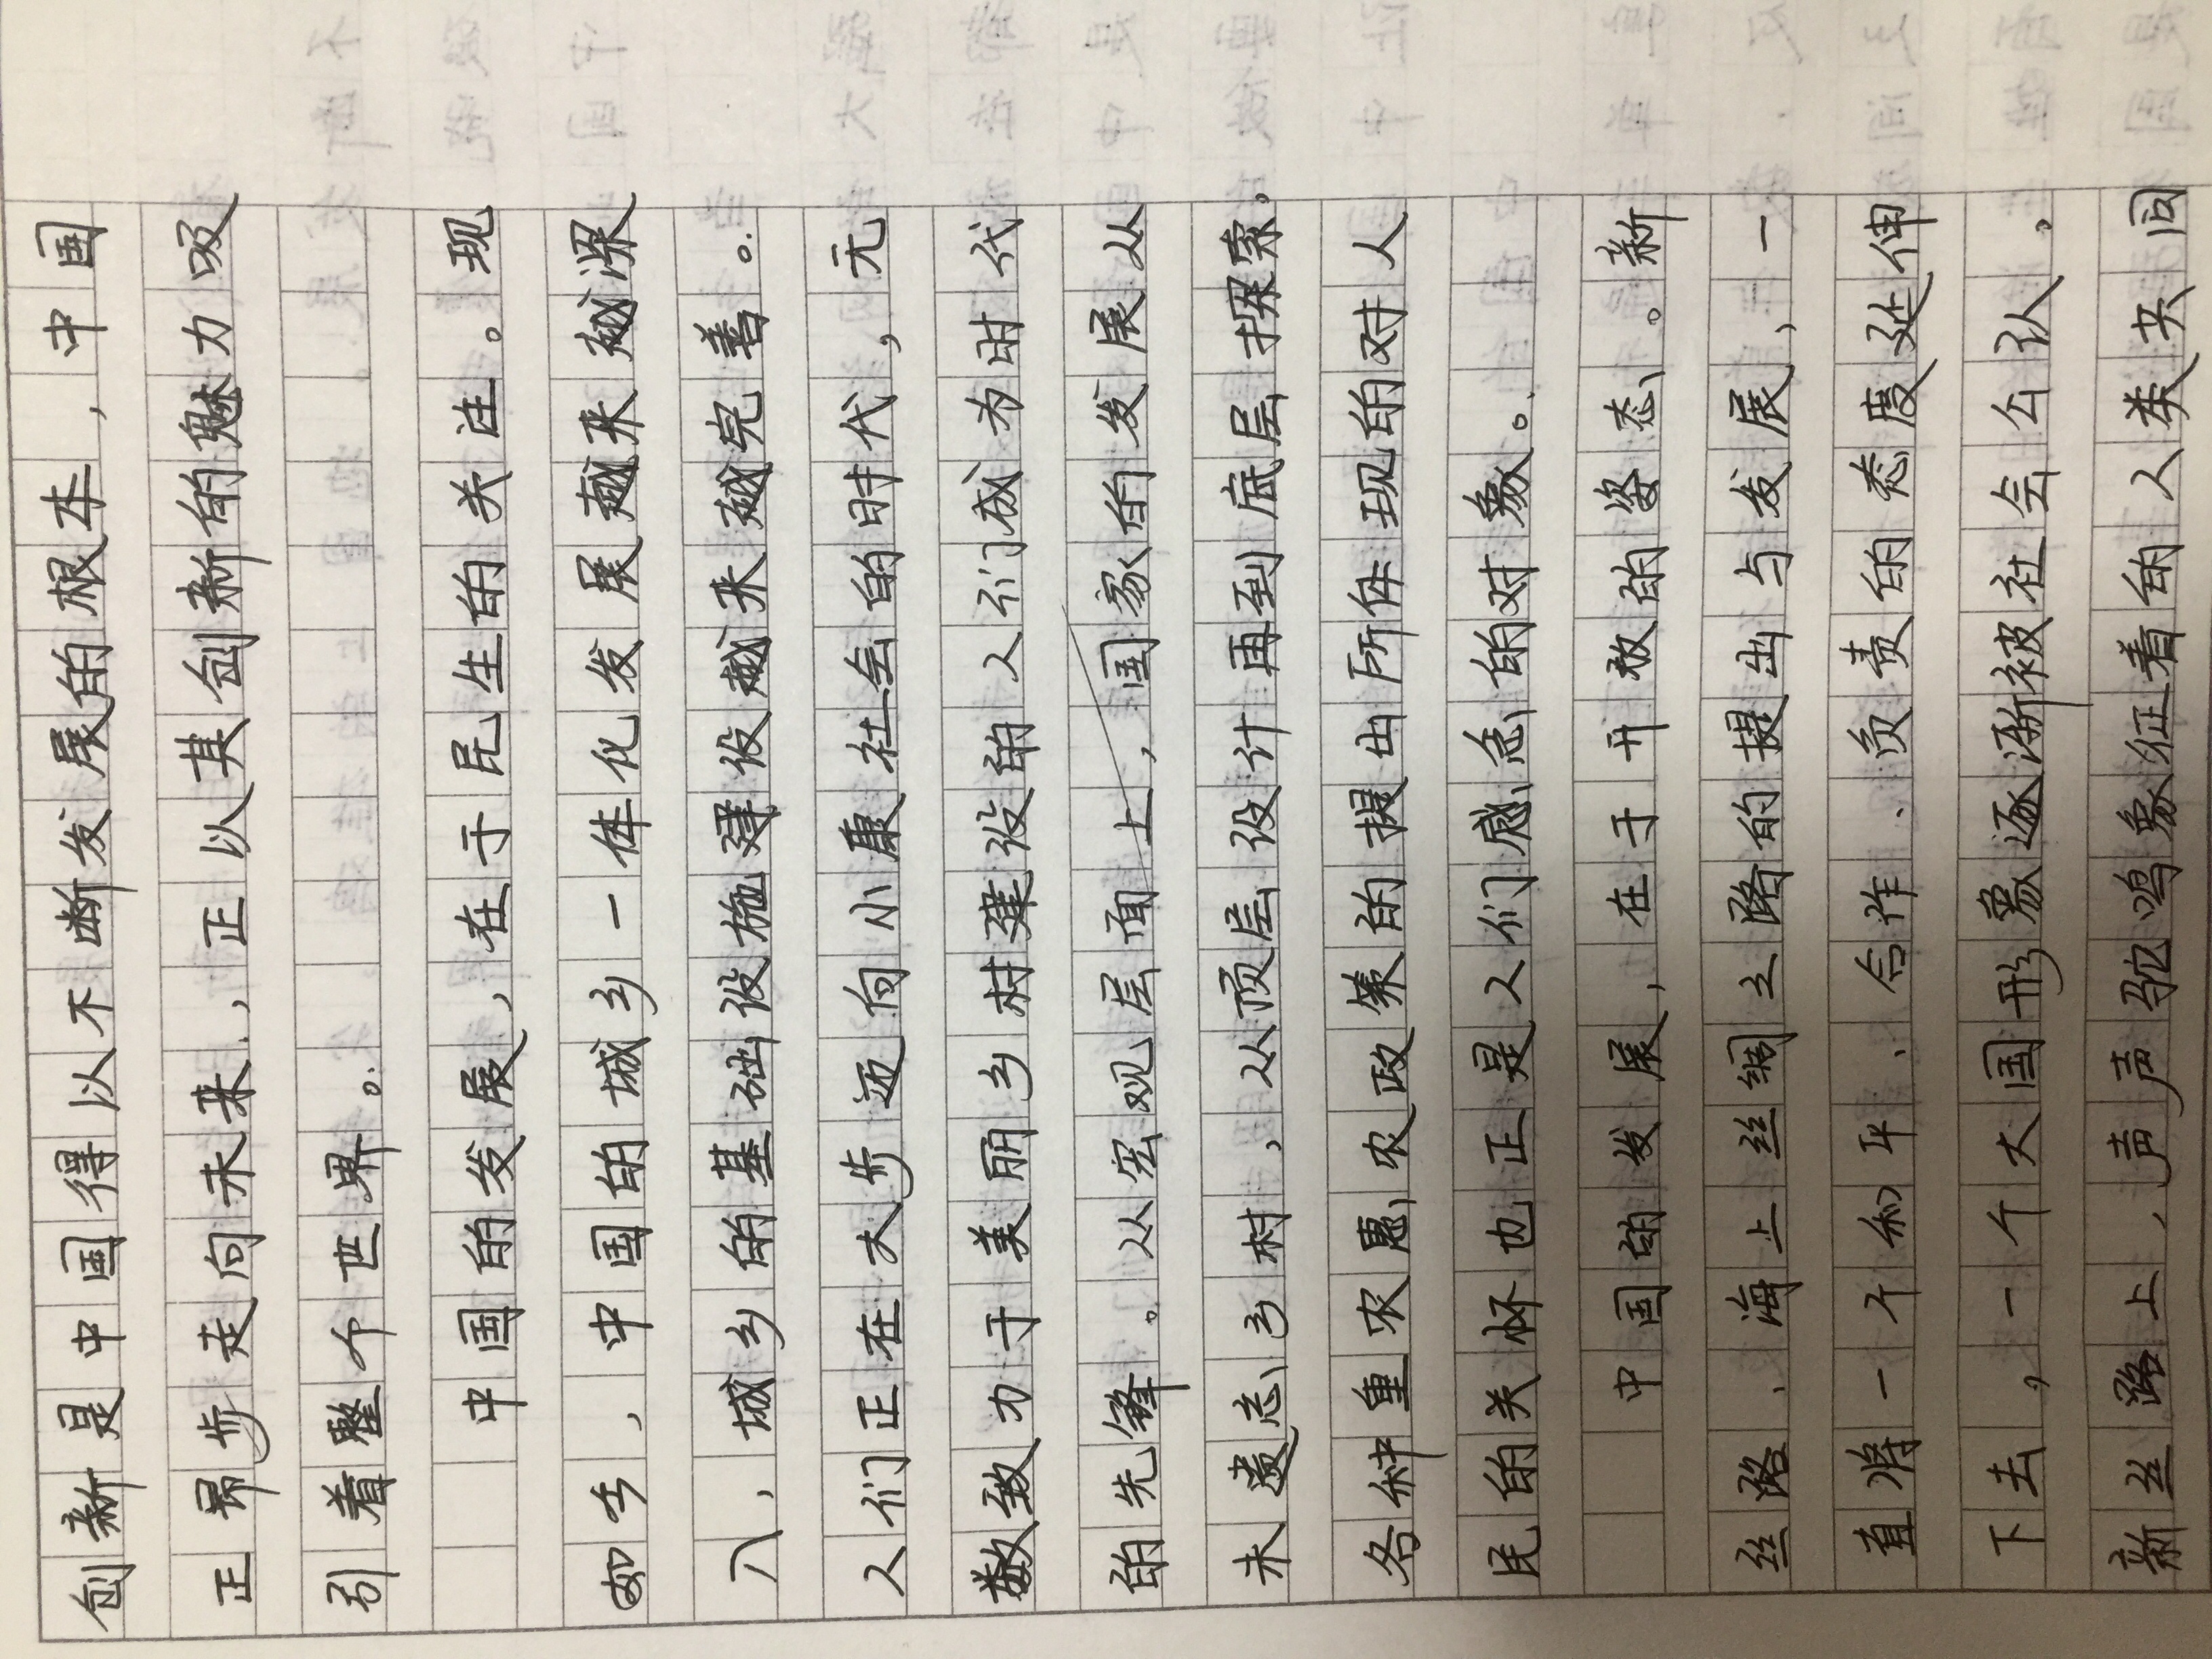 创新是中国得以不断发展的根本,中国
正昂步走向未来,正以其创新的魅力吸
引着整个世界。
中国的发展,在于民生的关注。现
如今,中国的城乡一体化发展越来越深
入,城乡的基础设施建设越来越完善。
人们正在大步迈向小康社会的时代,无
数致力于美丽乡村建设的人们成为时代
的先锋。从宏观层面上,国家的发展从
未遗忘乡村,从顶层设计再到底层探索。
各种重农惠农政策的提出所体现的对人
民的关怀也正是人们感念的对象。
中国的发展,在于开放的姿态。新
丝路、海上丝绸之路的提出与发展,一
直将一个和平、合作、负责的态度延伸
下去,一个大国形象逐渐被社会公认,
新丝路上,声声驼鸣象征着的人类共同